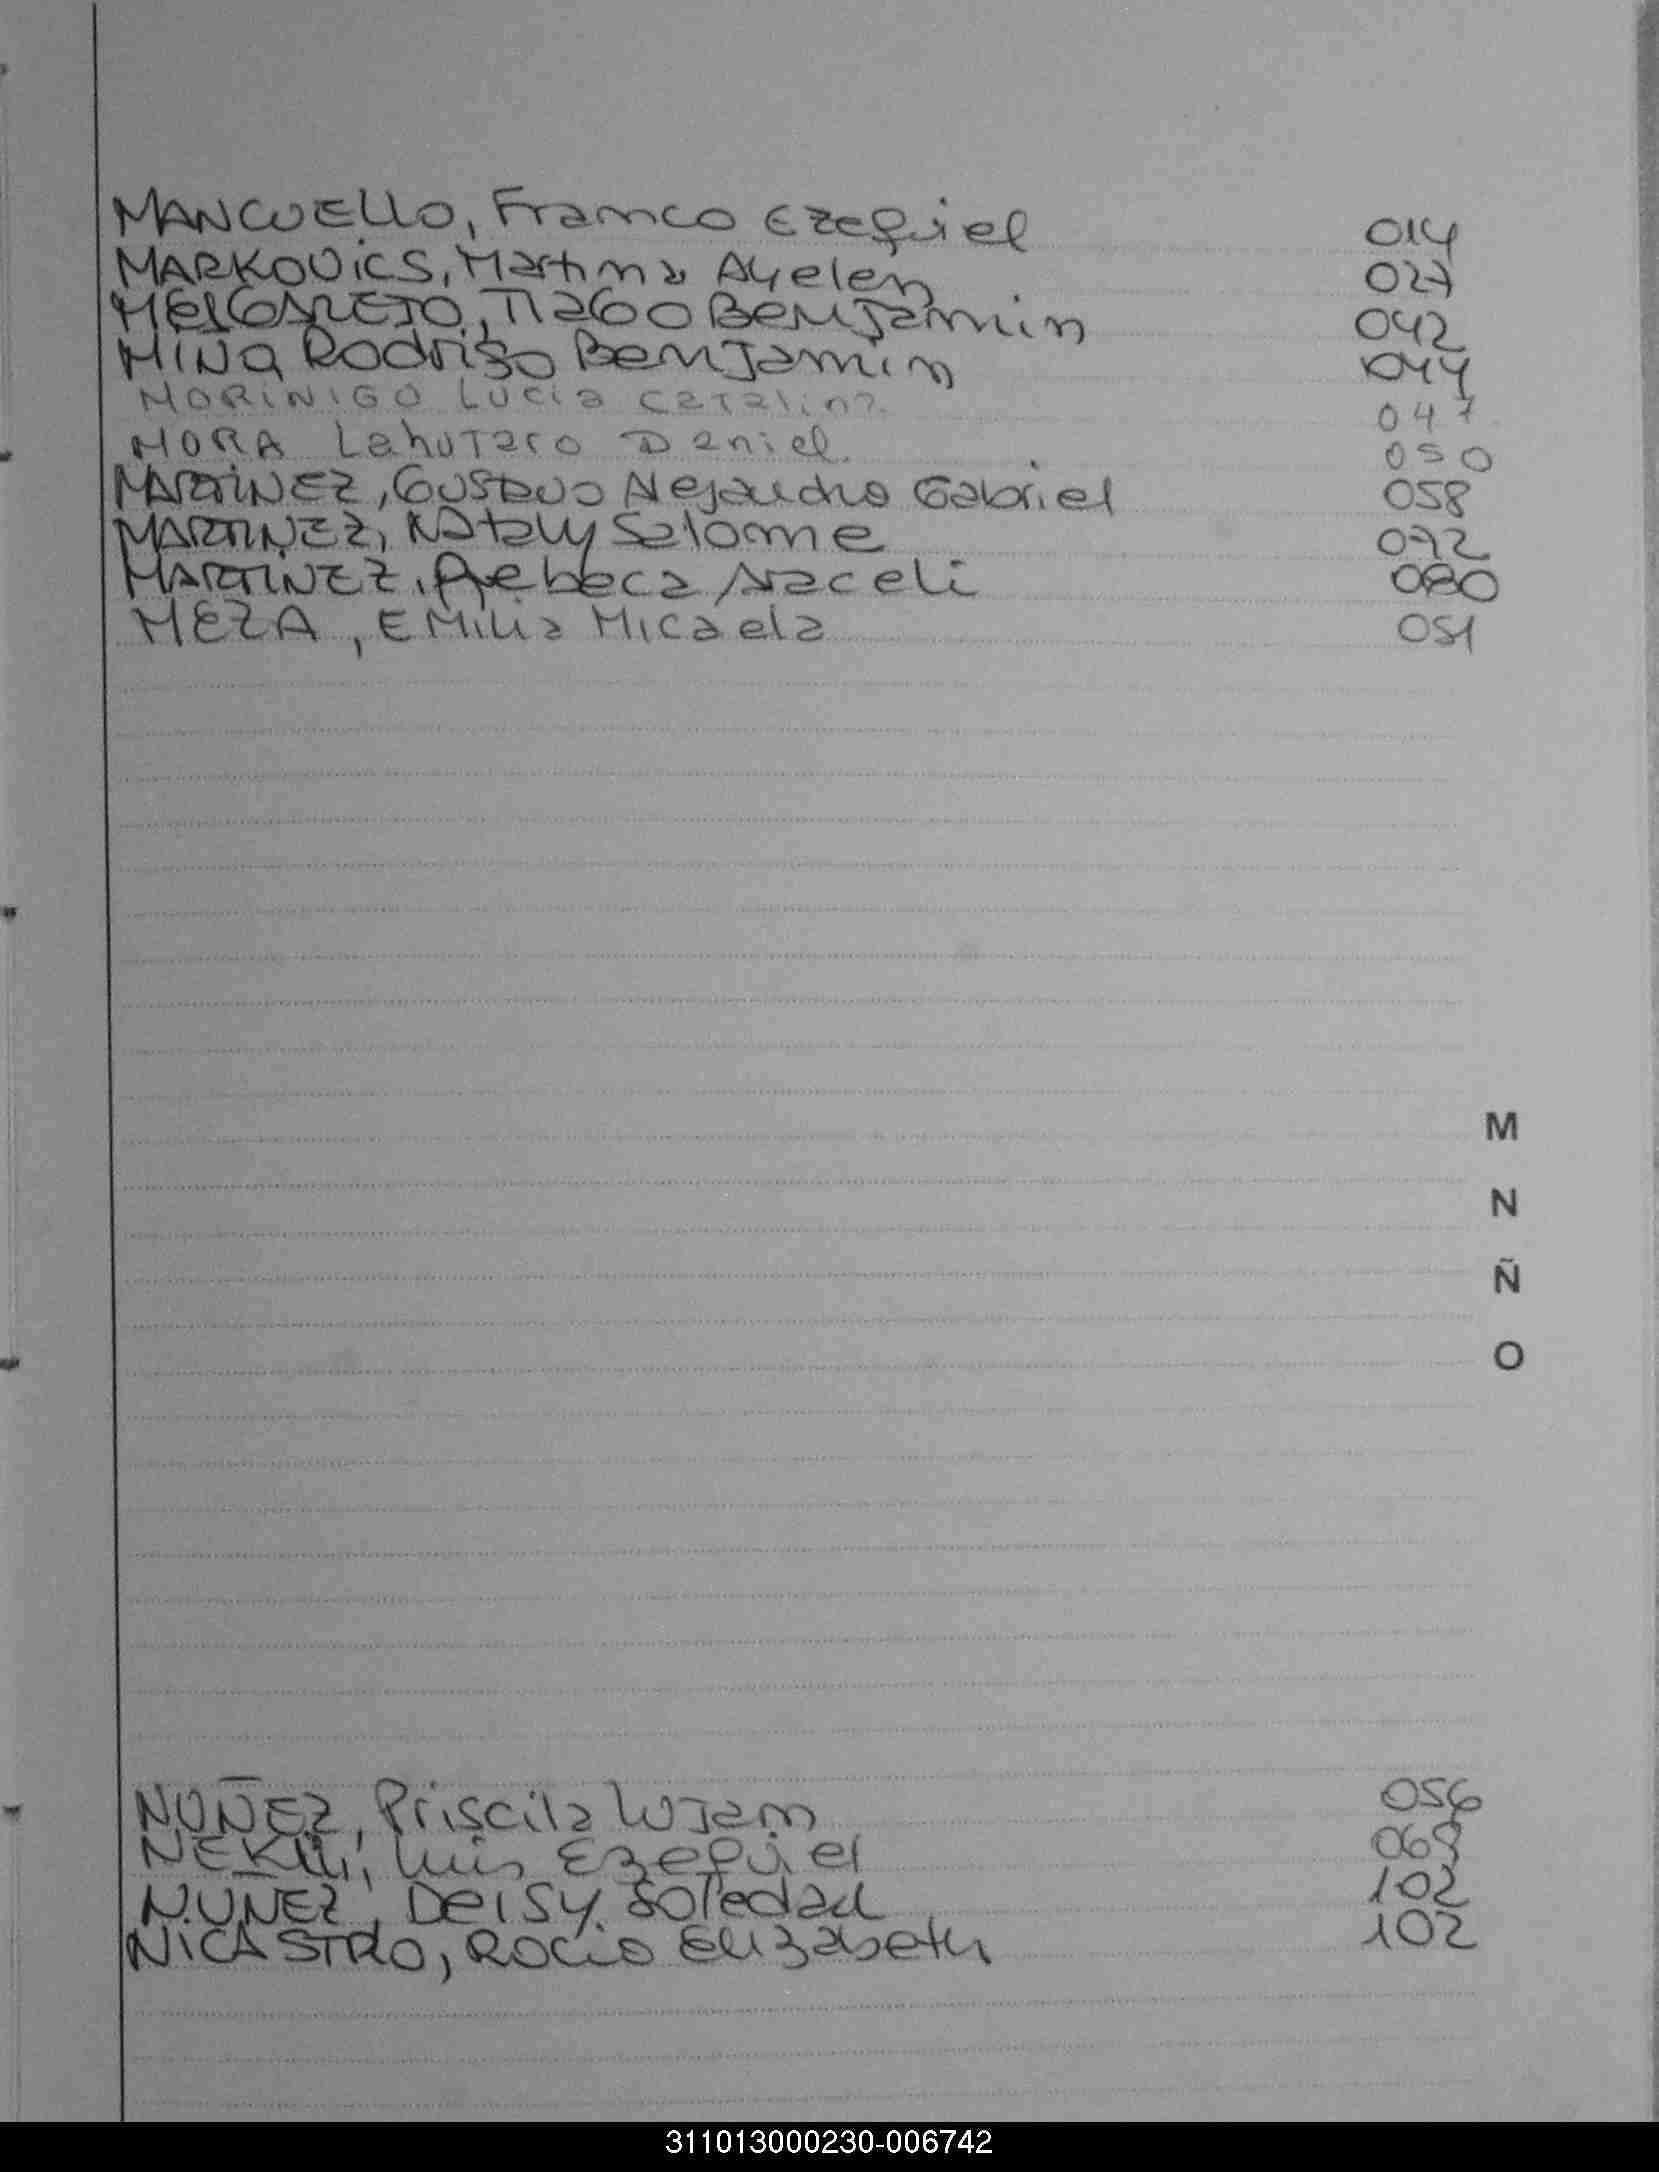 MANCUELLO, Franco Ezequiel 014
MARKOVICS, Martina Ayelen 027
MELGAREJO, Tiago Benjamin 042
MINO Rodrigo Benjamin 044
MORINIGO Lucia Catalina. 047
MORA Lahutaro Daniel. 050
MARTINEZ, Gustavo Alejandro Gabriel 058
MARTINEZ, Nataly Salome 072
MARTINEZ, Rebeca Araceli 080
MEZA, Emilia Micaela 051
M
N
Ñ
O
NUÑEZ, Priscila Lujan 056
Luis Ezequiel 069
NUNEZ, Deisy Soledad 102
NICASTRO, Rocio Elizabeth 102
311013000230-006742